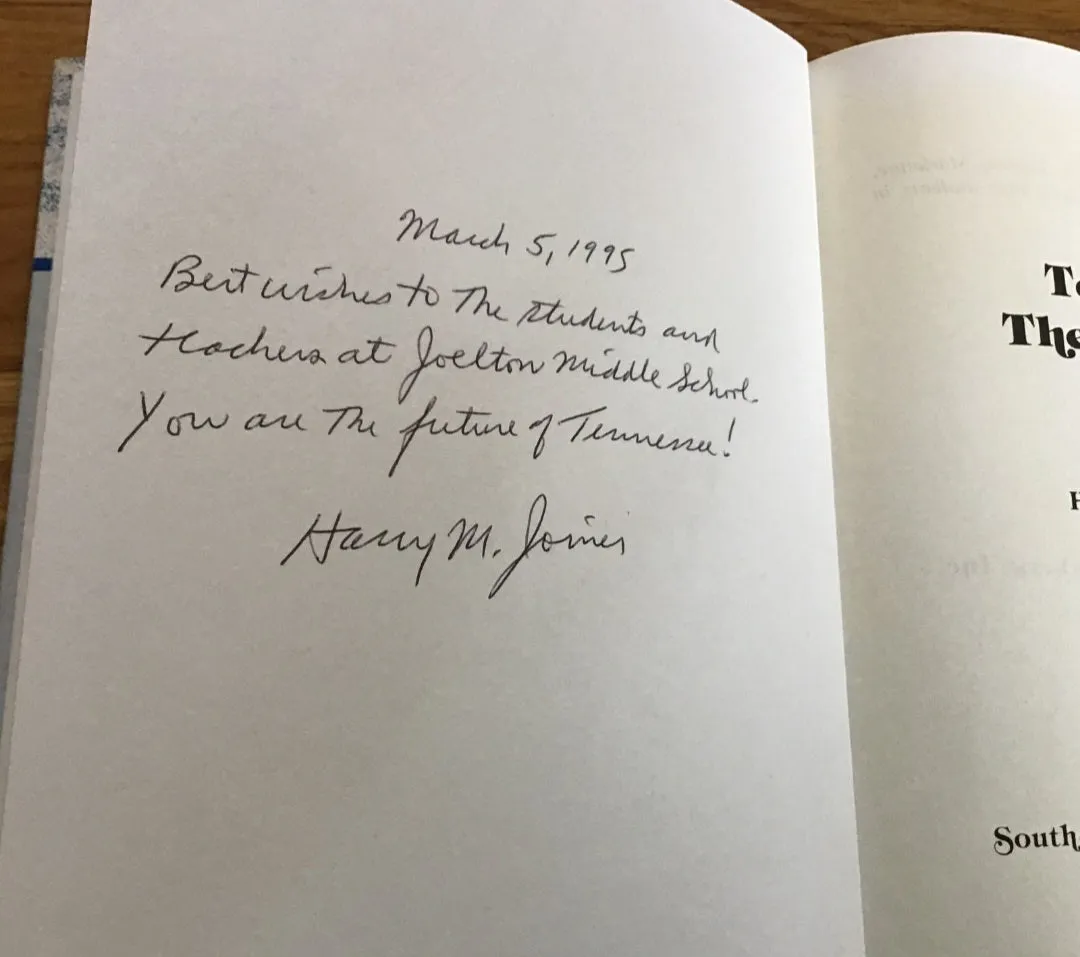 March 5, 1995
Best wishes to The students and
teachers at Joelton Middle School.
You are The future of Tennessee!
Harry M. Joiner
Te
The
H
South